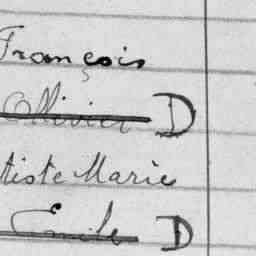 François
Ollivier D
tiste Marie
Emile D